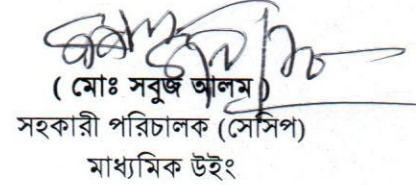 ( মোঃ সবুজ আলম )
সহকারী পরিচালক (সেসিপ)
মাধ্যমিক উইং